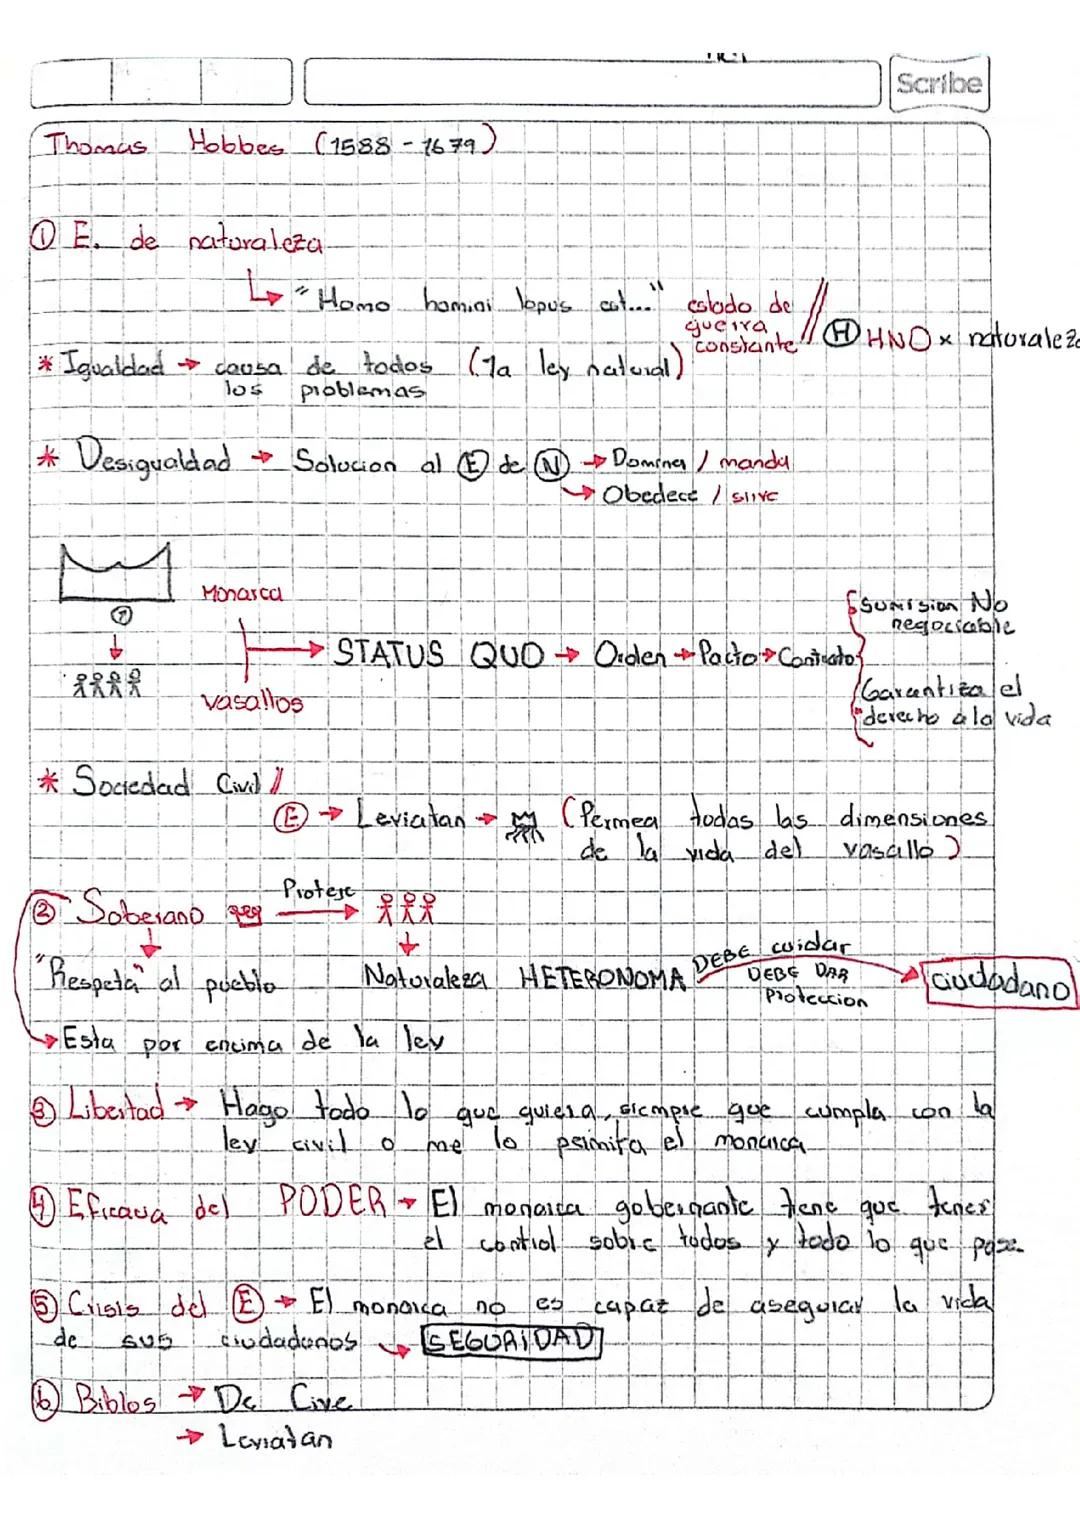 Scribe
Thomas Hobbes (1588 - 1679)
① E. de naturaleza
"Homo homini lopus est..." estado de guerra constante // Ⓗ HNO x naturaleza
* Igualdad → causa de todos (1a ley natural)
los problemas
* Desigualdad → Solucion al Ⓔ de Ⓝ → Domina / manda
→ Obedece / sirve
Monarca
Sumision No
negociable
STATUS QUO → Orden → Pacto → Contrato
Garantiza el
derecho a la vida
vasallos
* Sociedad Civil //
Ⓔ → Leviatan → (Permea todas las dimensiones
de la vida del vasallo)
② Soberano Protege
"Respeta" al pueblo Naturaleza HETERONOMA DEBE cuidar
DEBE DAR
Proteccion
ciudadano
→ Esta por encima de la ley
③ Libertad → Hago todo lo que quiera, siempre que cumpla con la
ley civil o me lo psimita el monarca
④ Eficacia del PODER → El monarca gobernante tiene que tener
el control sobre todos y todo lo que pase
⑤ Crisis del Ⓔ → El monarca no es capaz de asegurar la vida
de sus ciudadanos → SEGURIDAD
⑥ Biblos → De Cive
→ Leviatan